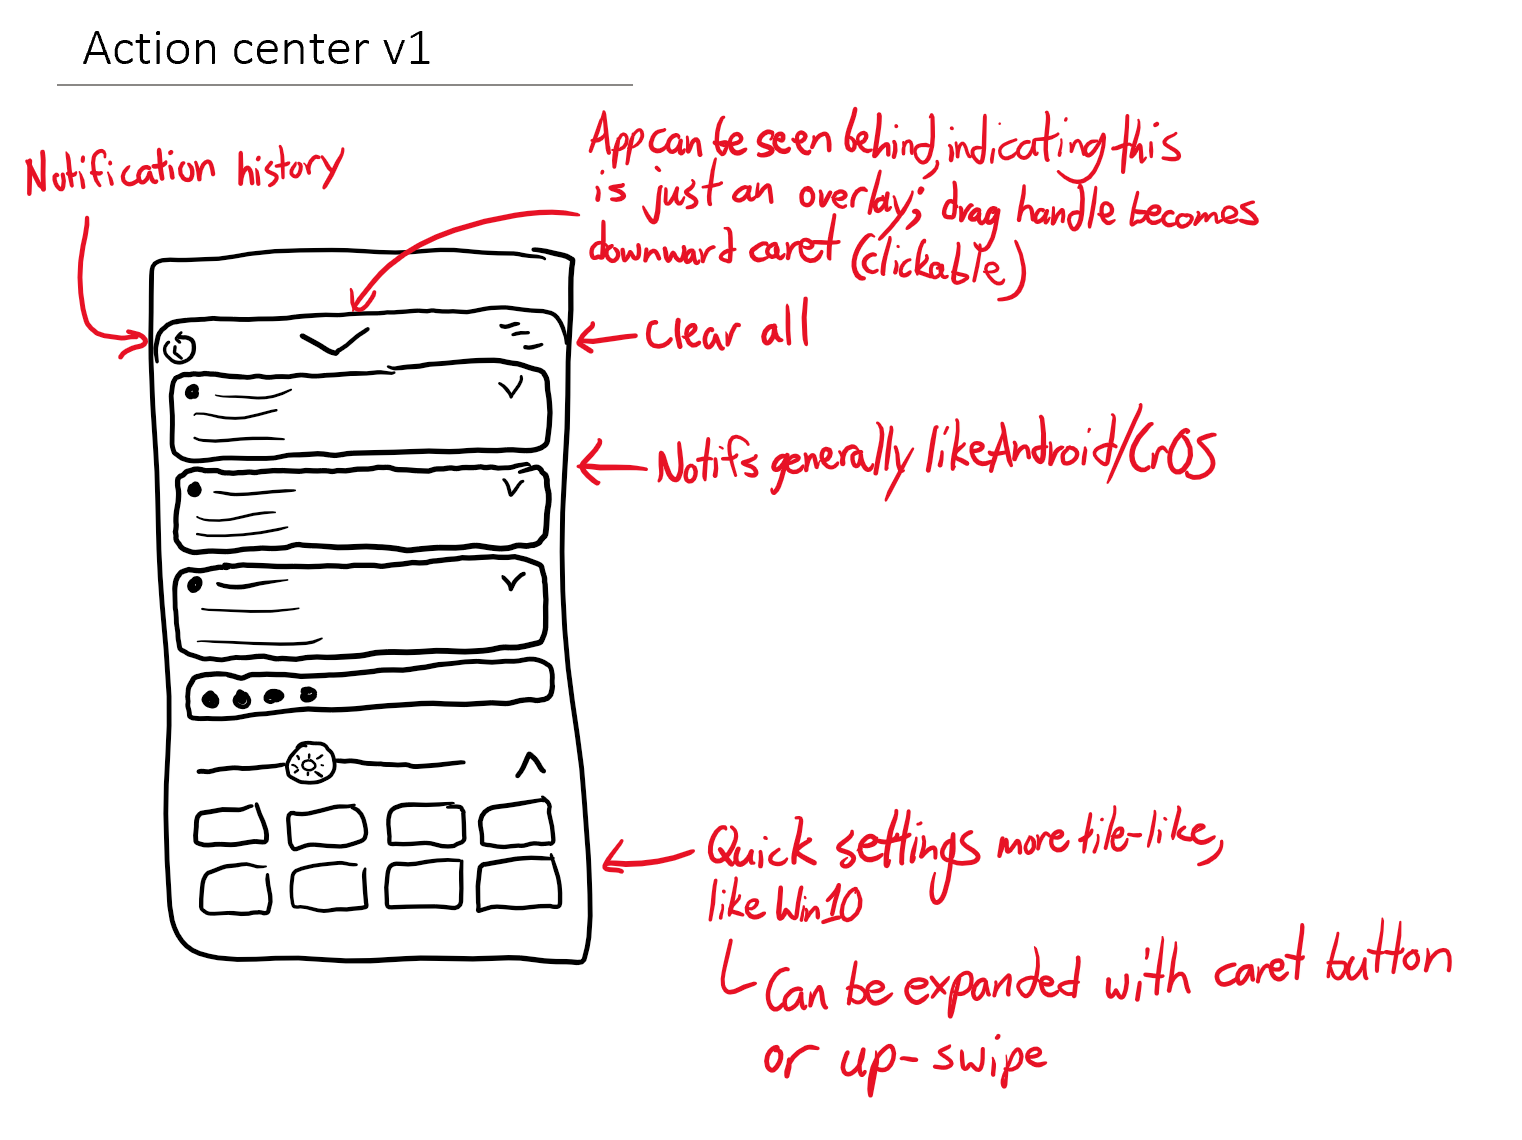 Action center v1
Notification history
App can be seen behind, indicating this
is just an overlay; drag handle becomes
downward caret (clickable)
Clear all
Notifs generally like Android/CrOS
Quick settings more tile-like,
like Win10
Can be expanded with caret button
or up-swipe